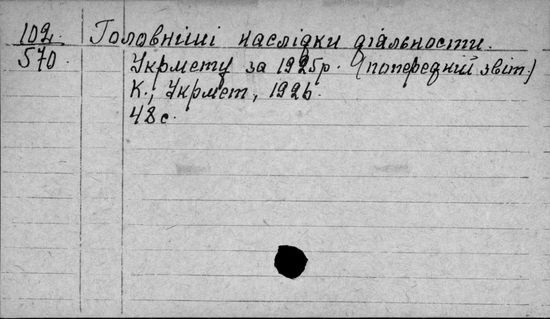 109. Головніші наслідки діяльности.
570 Укрмету за 1925р. (попередній звіт.)
К., Укрмет, 1926.
48с.